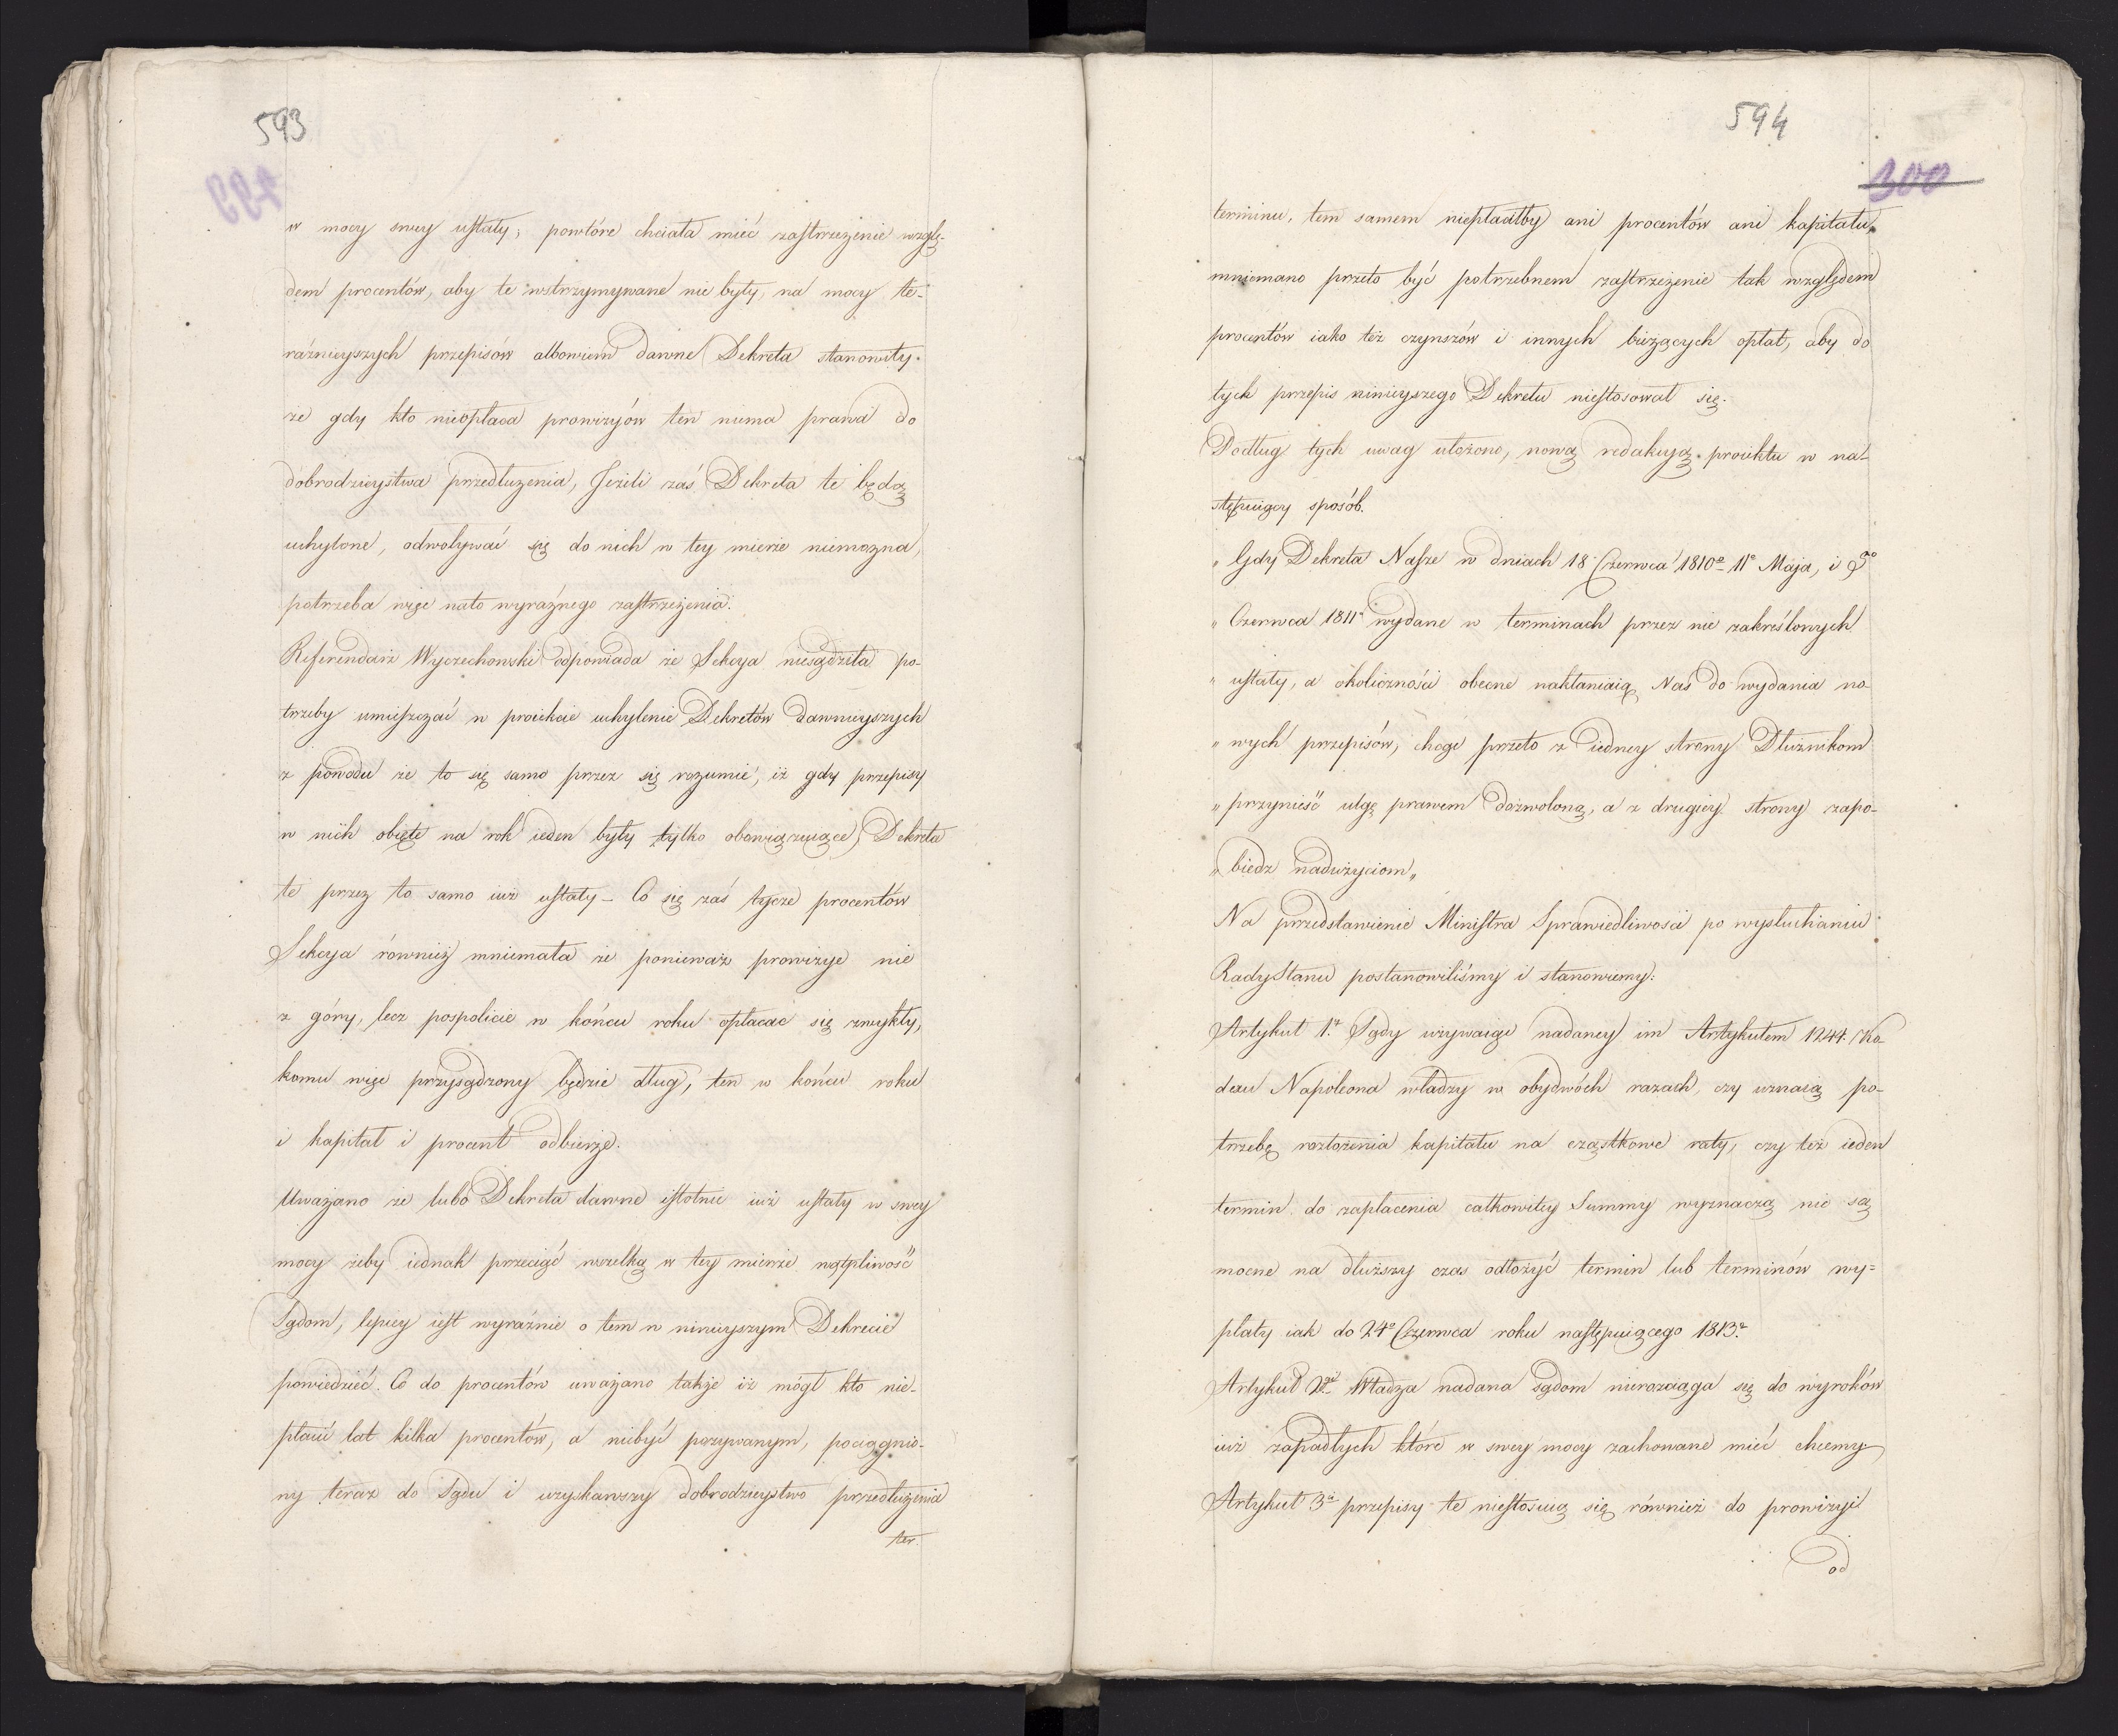 593
w mocy swey ustały; powtóre chciała mieć zastrzeżenie wzglę-
dem procentów, aby te wstrzymywane nie były, na mocy te-
raźnieyszych przepisów albowiem dawne Dekreta stanowiły.
że gdy kto nieopłaca prowizyów ten niema prawa do
dobrodzieystwa przedłużenia, Jeżeli zaś Dekreta te będą
uchylone, odwoływać się do nich w tey mierze niemożna,
potrzeba więc nato wyraźnego zastrzeżenia.
Referendarz Wyczechowski odpowiada że Sekcya niesądziła po-
trzeby umieszczać w proiekcie uchylenie Dekretów dawnieyszych
z powodu że to się samo przez się rozumie, iż gdy przepisy
w nich obięte na rok ieden były tylko obowiązuiące, Dekreta
te przez to samo iuż ustały – Co się zaś tycze procentów
Sekcya również mniemała że ponieważ prowizye nie
z góry, lecz pospolicie w końcu roku opłacać się zwykły,
komu więc przysądzony będzie dług, ten w końcu roku
i kapitał i procent odbierze.
Uważano że lubo Dekreta dawne istotnie iuż ustały w swey
mocy żeby iednak przeciąć wszelką w tey mierze wątpliwość
Sądom, lepiey iest wyraźnie o tem w ninieyszym Dekrecie
powiedzieć. Co do procentów uważano także iż mógł kto nie-
płacić lat kilka procentów, a niebyć pozywanym, pociągnio-
ny teraz do Sądu i uzyskawszy dobrodzieystwo przedłużenia
ter.
594
300
terminu, tem samem niepłaciłby ani procentów ani kapitału,
mniemano przeto być potrzebnem zastrzeżenie tak względem
procentów iako też czynszów i innych bieżących opłat, aby do
tych przepis ninieyszego Dekretu niestosował się.
Podług tych uwag ułożono, nową redakcyą proiektu w na-
stępuiący sposób.
„ Gdy Dekreta Nasze w dniach 18 Czerwca 1810º 11º Maja, i 9º
„ Czerwca 1811º wydane w terminach przez nie zakreślonych
„ ustały, a okoliczności obecne nakłaniaią Nas do wydania no-
„ wych przepisów, chcąc przeto z iedney strony Dłużnikom
„ przynieść ulgę prawem dozwoloną, a z drugiey strony zapo-
„ biedz nadużyciom„
Na przedstawienie Ministra Sprawiedliwości po wysłuchaniu
Rady Stanu postanowiliśmy i stanowiemy:
Artykuł 1.º Sądy używaiąc nadaney im Artykułem 1244. Ko-
dexu Napoleona władzy w obydwóch razach, czy uznaią po-
trzebę rozłożenia kapitału na cząstkowe raty, czy też ieden
termin do zapłacenia całkowitey Summy wyznaczą nie są
mocne na dłuższy czas odłożyć termin lub terminów wy=
płaty iak do 24º Czerwca roku następuiącego 1813.º
Artykuł 2gi Władza nadana sądom nierozciąga się do wyroków
iuż zapadłych które w swey mocy zachowane mieć chcemy
Artykuł 3i przepisy te niestosuią się również do prowizyi
od